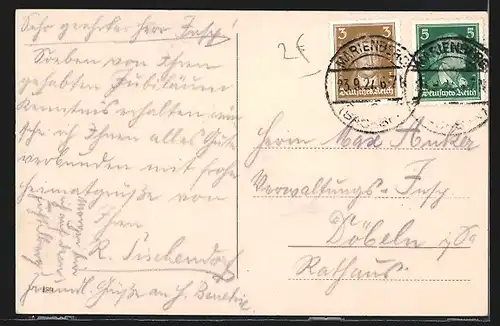 Sehr geehrter Herr Insp!
Soeben von Ihrem
gehabten Jubiläum
Kenntnis erhalten wün
sche ich Ihnen alles Gute
verbunden mit frohen
Heimatgrüße von
Ihrem
R. Tischendorf
freundl. Grüße an H.
Morgen bin
ich auf dem
2 €
3
3
Deutsches Reich
5
5
Deutsches Reich
MARIENBERG
MARIENBERG
(SACHSEN)
Herrn Max Anker
Verwaltungs-Insp
Döbeln i/Sa
Rathaus